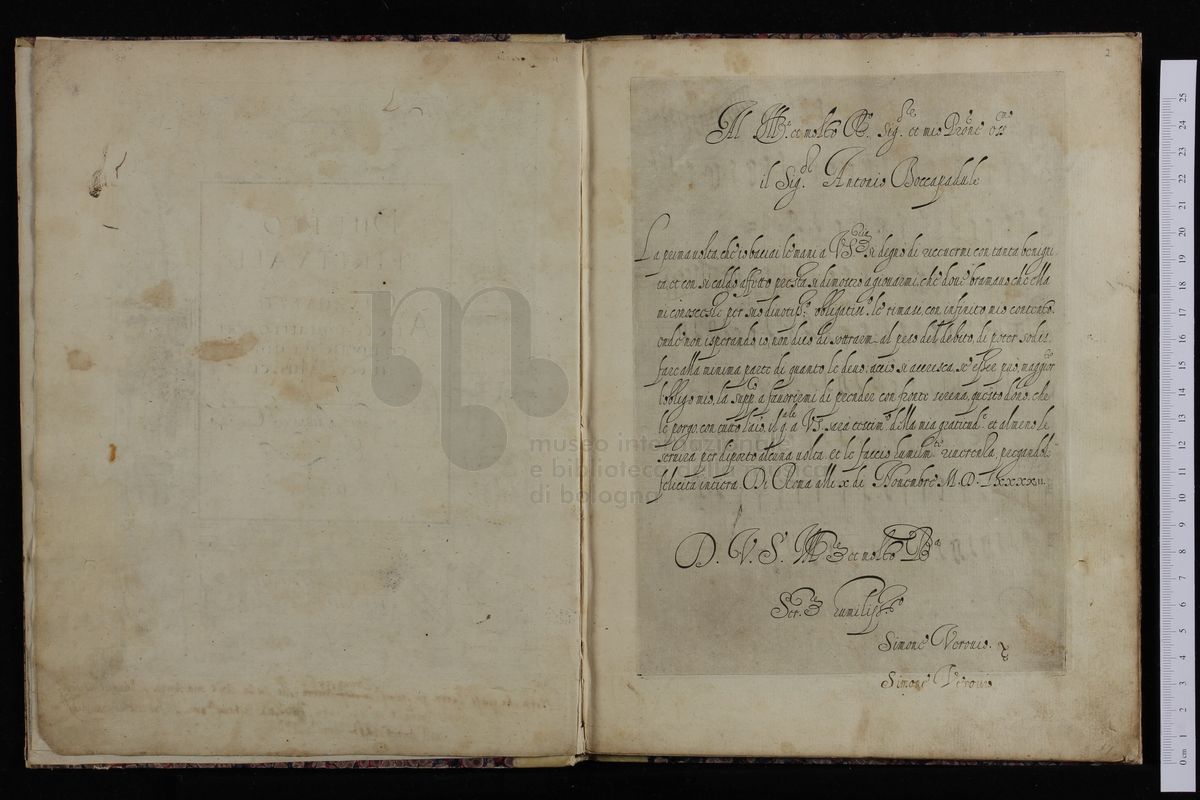 2
Al Ill.re et molto R. Sig.re et mio Prone oss.mo
il Sig.re Antonio Boccapadule
La prima uolta, che io baciai le mani a V.S. si degnò di riceuermi con tanta benigni
ta, et con si caldo affetto presta si dimostrò a giouarmi, che doue bramauo che ella
mi conoscesse per suo diuotiss.o obligatiss. le rimasi, con infinito mio contento.
onde non isperando io, non dico di sottrarmi al peso del debito, di poter sodis
fare alla minima parte di quanto le deuo, acciò si accresca, se esser può, maggior
l'obligo mio, la supp.co a fauorirmi di prender con fronte serena, questo dono, che
le porgo, con tutto l'aio, il q.ale a V.S. sara testim.o della mia gratitud.e et almeno le
seruira per diporto alcuna uolta. et le faccio humilm.te riuerenza, pregandole
felicita intiera. Di Roma alli x di Nouembre M.D.LXXXXII.
D. V. S. Ill.re et molto R.a
Ser.re humiliss.o
Simone Verouio.
Simone Verouio
museo internazionale
e biblioteca della musica
di bologna
0 cm 1 2 3 4 5 6 7 8 9 10 11 12 13 14 15 16 17 18 19 20 21 22 23 24 25